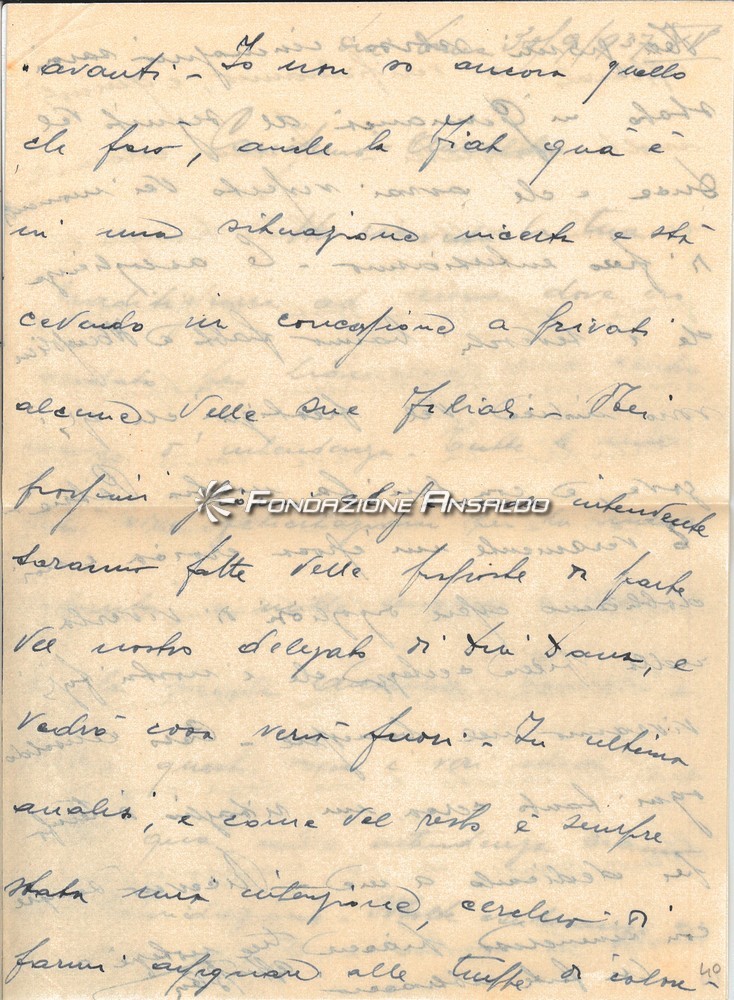 avanti - Io non so ancora quello
che farò, anche la Fiat quà è
in una situazione incerta e stà
cedendo in concessione a privati
alcune delle sue filiali - Nei
prossimi giorni intendente
FONDAZIONE ANSALDO
saranno fatte delle proposte da parte
del nostro delegato di Dire Daua, e
vedrò cosa verrà fuori - In ultima
analisi, e come del resto è sempre
stata mia intenzione, cercherò di
farmi assegnare alle truppe di colore -
40